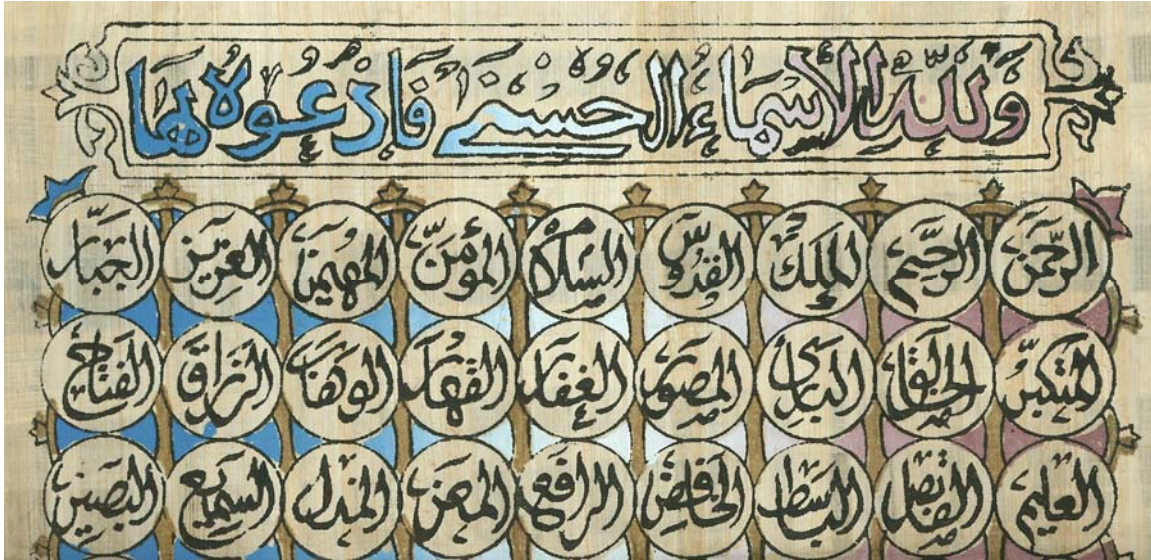 ولله الأسماء الحسنى فادعوه بها
الرحمن الرحيم الملك القدوس السلام المؤمن المهيمن العزيز الجبار
المتكبر الخالق البارئ المصور الغفار القهار الوهاب الرزاق الفتاح
العليم القابض الباسط الخافض الرافع المعز المذل السميع البصير